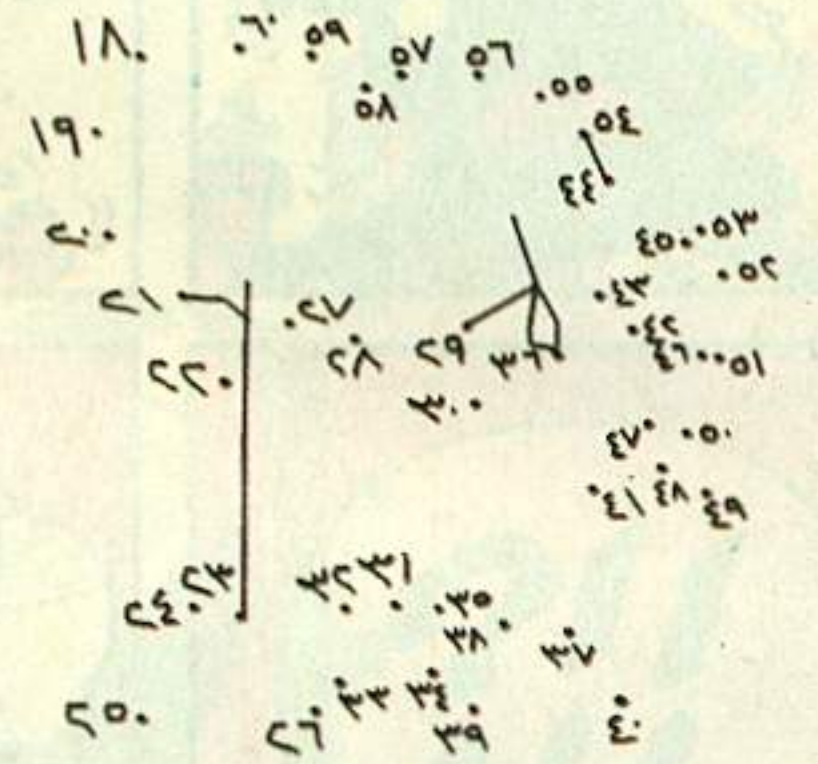 ١٨ ٦٠ ٥٩ ٥٧ ٥٦
٥٨ ٥٥
١٩ ٥٤
٤٤
٢٠ ٤٥ ٥٣
٥٢
٢١ ٢٧ ٤٣
٤٢
٢٢ ٢٨ ٢٩ ٣٦ ٤٦ ٥١
٣٠
٤٧ ٥٠
٤١ ٤٨ ٤٩
٢٤ ٢٣ ٣٢ ٣١
٣٥
٣٨ ٣٧
٢٥ ٢٦ ٣٣ ٣٤
٣٩ ٤٠